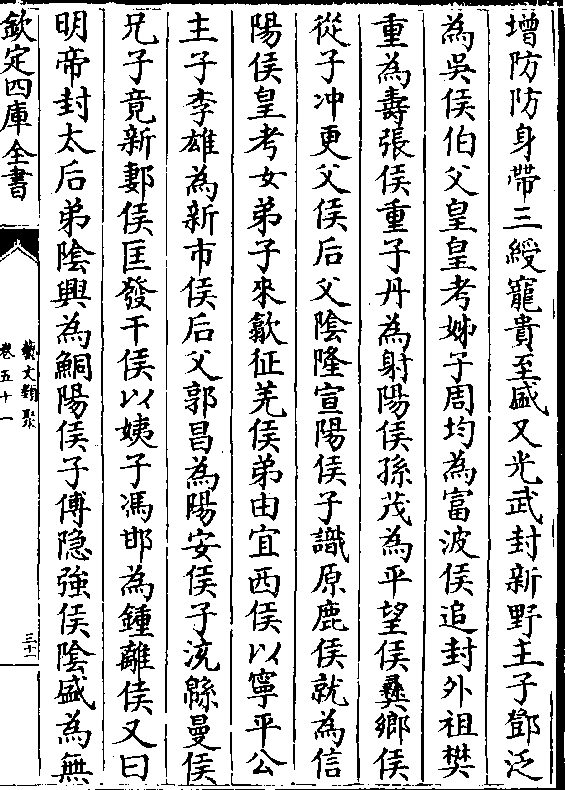 增防防身帶三綬寵貴至盛又光武封新野主子鄧泛
為吳侯伯父皇皇考姊子周均為富波侯追封外祖樊
重為壽張侯重子丹為射陽侯孫茂為平望侯彝鄉侯
從子冲更父侯后父陰隆宣陽侯子識原鹿侯就為信
陽侯皇考女弟子來歙征羌侯弟由宜西侯以寧平公
主子李雄為新市侯后父郭昌為陽安侯子流緜曼侯
兄子竟新郪侯匡發干侯以姨子馮邯為鍾離侯又曰
明帝封太后弟陰興為鮦陽侯子傅隐強侯陰盛為無
欽定四庫全書
藝文類聚
卷五十一
三十